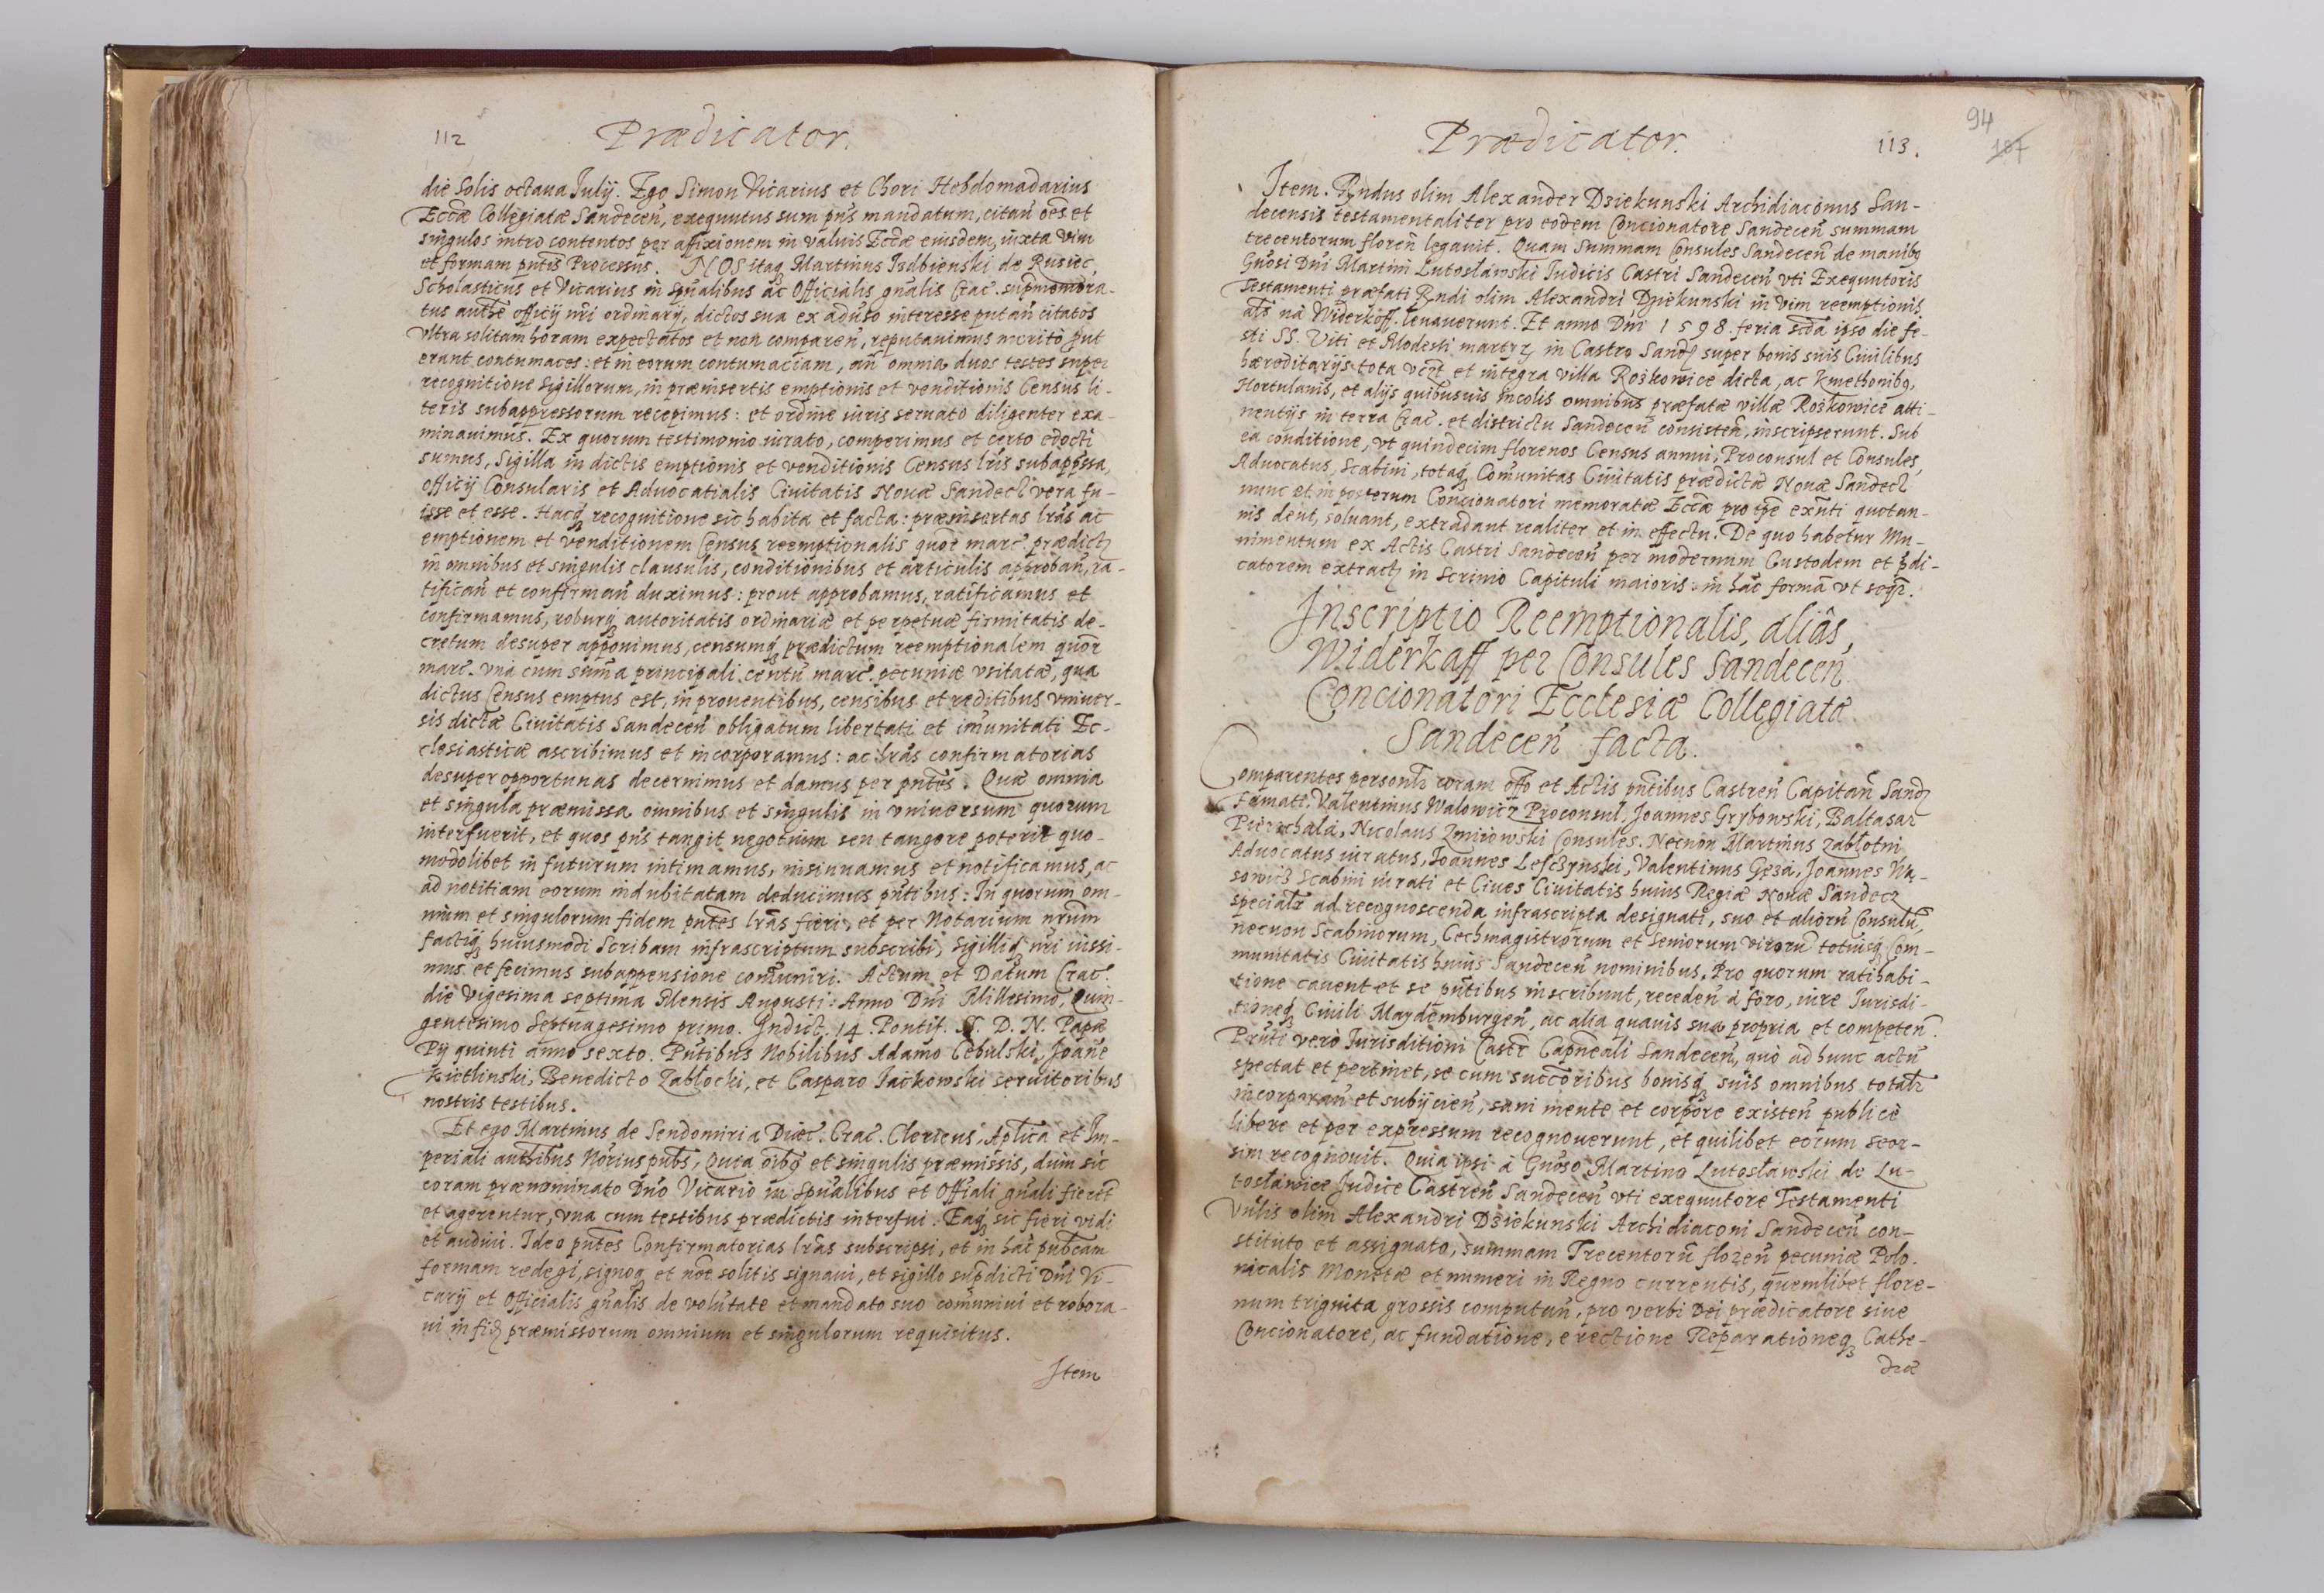 112 Prædicator.
die Solis octaua Julij. Ego Simon Vicarius et Chori Hebdomadarius
Eccæ Collegiatæ Sandeceñ, exequutus sum pñs mandatum, citañ oẽs et
singulos intro contentos per affixionem in valuis Eccæ eiusdem, iuxta vim
et formam pñtis Processus. NOS itaq Martinus Izdbienski de Rusiec,
Scholasticus et Vicarius in Spũalibus ac Officialis gñalis Crac. supmemora-
tus authe officij nři ordinarij, dictos sua ex aduso interesse putañ citatos
vltra solitam horam expectatos et non compareñ, reputauimus meritò put
erant contumaces: et in eorum contumaciam, añ omnia duos testes super
recognitione sigillorum, in præinsertis emptionis et venditionis Census li-
teris subappressorum recepimus: et ordine iuris seruato diligenter exa-
minauimus. Ex quorum testimonio iurato, comperimus et certo edocti
sumus, Sigilla in dictis emptionis et venditionis Census lr̃is subappssa,
officij Consularis et Aduocatialis Ciuitatis Nouæ Sandecz vera fu-
isse et esse. Hacq recognitione sic habita et facta: præinsertas lr̃as ac
emptionem et venditionem Census reemptionalis quor marc. prædict
in omnibus et singulis clausulis, conditionibus et articulis approbañ, ra-
tificañ et confirmañ duximus: prout approbamus, ratificamus et
confirmamus, roburq autoritatis ordinariæ et perpetuæ firmitatis de-
cretum desuper apponimus, censumq prædictum reemptionalem quor
marc. vna cum sum̃a principali centũ marc. pecuniæ vsitatæ, qua
dictus Census emptus est, in prouentibus, censibus et reditibus vniuer-
sis dictæ Ciuitatis Sandeceñ obligatum libertati et im̃unitati Ec-
clesiasticæ ascribimus et incorporamus: ac lr̃as confirmatorias
desuper opportunas decernimus et damus per pñtes. Quæ omnia
et singula præmissa omnibus et singulis in vniuersum quorum
interfuerit, et quos pñs tangit negotium seu tangere poterit quo-
modolibet in futurum intimamus, insinuamus et notificamus, ac
ad notitiam eorum indubitatam deducimus pñtibus: In quorum om-
nium et singulorum fidem pñtes lr̃as fieri, et per Notarium nr̃um
factiq huiusmodi Scribam infrascriptum subscribi, Sigilliq nři iussi-
mus et fecimus subappensione com̃uniri. Actum et Datum Crac.
die vigesima septima Mensis Augusti: Anno Dñi Millesimo, Quin-
gentesimo Septuagesimo primo. Indict. 14. Pontif. S. D. N. Papæ
Pij quinti anno sexto. Pñtibus Nobilibus Adamo Cebulski, Joañe
Kietlinski, Benedicto Zabłocki, et Casparo Jackowski seruitoribus
nostris testibus.
Et ego Martinus de Sendomiria Diœc. Crac. Clericus, Aplica et Im-
periali autħibus Nòrius pub̃s, Quia oĩbq et singulis præmissis, dum sic
coram prænominato Dño Vicario in Spũalibus et Offiali gñali fierẽt
et agerentur, vna cum testibus prædictis interfui. Eaq sic fieri vidi
et audiui. Ideo pñtes Confirmatorias lr̃as subscripsi, et in hãc pub̃cam
formam redegi, signoq et nõe solitis signaui, et sigillo supdicti Dñi Vi-
carij et Officialis gñalis de volũtate et mandato suo com̃uniui et robora-
ui in fid præmissorum omnium et singulorum requisitus.
Item
94
Prædicator. 113.
Item. Rndus olim Alexander Dziekunski Archidiaconus San-
decensis testamentaliter pro eodem Concionatore Sandeceñ summam
trecentorum floreñ legauit. Quam Summam Consules Sandeceñ de manibq
Gñosi Dñi Martini Lutosławski Iudicis Castri Sandeceñ vti Exequutoris
Testamenti præfati Rndi olim Alexandri Dziekunski in vim reemptionis
als na Widerkoff leuauerunt. Et anno Dñi 1598. feria scđa ipso die fe-
sti SS. Viti et Modesti martyr in Castro Sand super bonis suis Ciuilibus
hæreditarijs tota vczt et integra villa Roszkowice dicta, ac Kmethonibq,
Hortulanis, et alijs quibusuis incolis omnibus præfatæ villæ Roszkowice atti-
nentijs in terra Crac. et districtu Sandeceñ consisteñ, inscripserunt. Sub
ea conditione, vt quindecim florenos Census annui, Proconsul et Consules,
Aduocatus, Scabini, totaq Com̃unitas Ciuitatis prædictæ Nouæ Sandecz
nunc et in posterum Concionatori memoratæ Eccæ pro tp̃e exñti quotan-
nis dent, soluant, extradant realiter et in effectu. De quo habetur Mu-
nimentum ex Actis Castri Sandeceñ per modernum Custodem et pdi-
catorem extract in Scrinio Capituli maioris: in hãc formã vt seqr.
Inscriptio Reemptionalis, aliâs,
Widerkaff per Consules Sandeceñ
Concionatori Ecclesiæ Collegiatæ
Sandeceñ facta.
Comparentes personlr coram offo et Actis pñtibus Castreñ Capitañ Sand
Famati. Valentinus Walowicz Proconsul, Joannes Grybowski, Baltasar
Pierzchała, Nicolaus Zmijowski Consules. Necnon Martinus Zabłotni
Aduocatus iuratus, Joannes Leszczynski, Valentinus Geza, Joannes Wą-
sowicz Scabini iurati et Ciues Ciuitatis huius Regiæ Nouæ Sandecz
specialr ad recognoscenda infrascripta designati, suo et aliorũ Consulũ,
necnon Scabinorum, Cechmagistrorum et Seniorum virorũ totiusq Com-
munitatis Ciuitatis huius Sandeceñ nominibus. Pro quorum ratihabi-
tione cauent et se pñtibus inscribunt, recedeñ à foro, iure Iurisdi-
tioneq Ciuili Maydemburgeñ, ac alia quauis sua propria et competeñ.
Pñti verò Iurisditioni Castr Capneali Sandeceñ, quò ad hunc actũ
spectat et pertinet, se cum succoribus bonisq suis omnibus totalr
incorporañ et subijcieñ, sani mente et corpore existeñ publicè
libere et per expressum recognouerunt, et quilibet eorum seor-
sim recognouit. Quia ipsi à Gñoso Martino Lutosławski de Lu-
tosławice Judice Castreñ Sandeceñ vti exequutore Testamenti
Vnlis olim Alexandri Dziekunski Archidiaconi Sandeceñ con-
stituto et assignato, summam Trecentorũ floreñ pecuniæ Polo-
nicalis Monetæ et numeri in Regno currentis, quemlibet flore-
num triginta grossis computañ, pro verbi Dei prædicatore siue
Concionatore, ac fundatione, erectione Reparationeq Cathe-
dræ